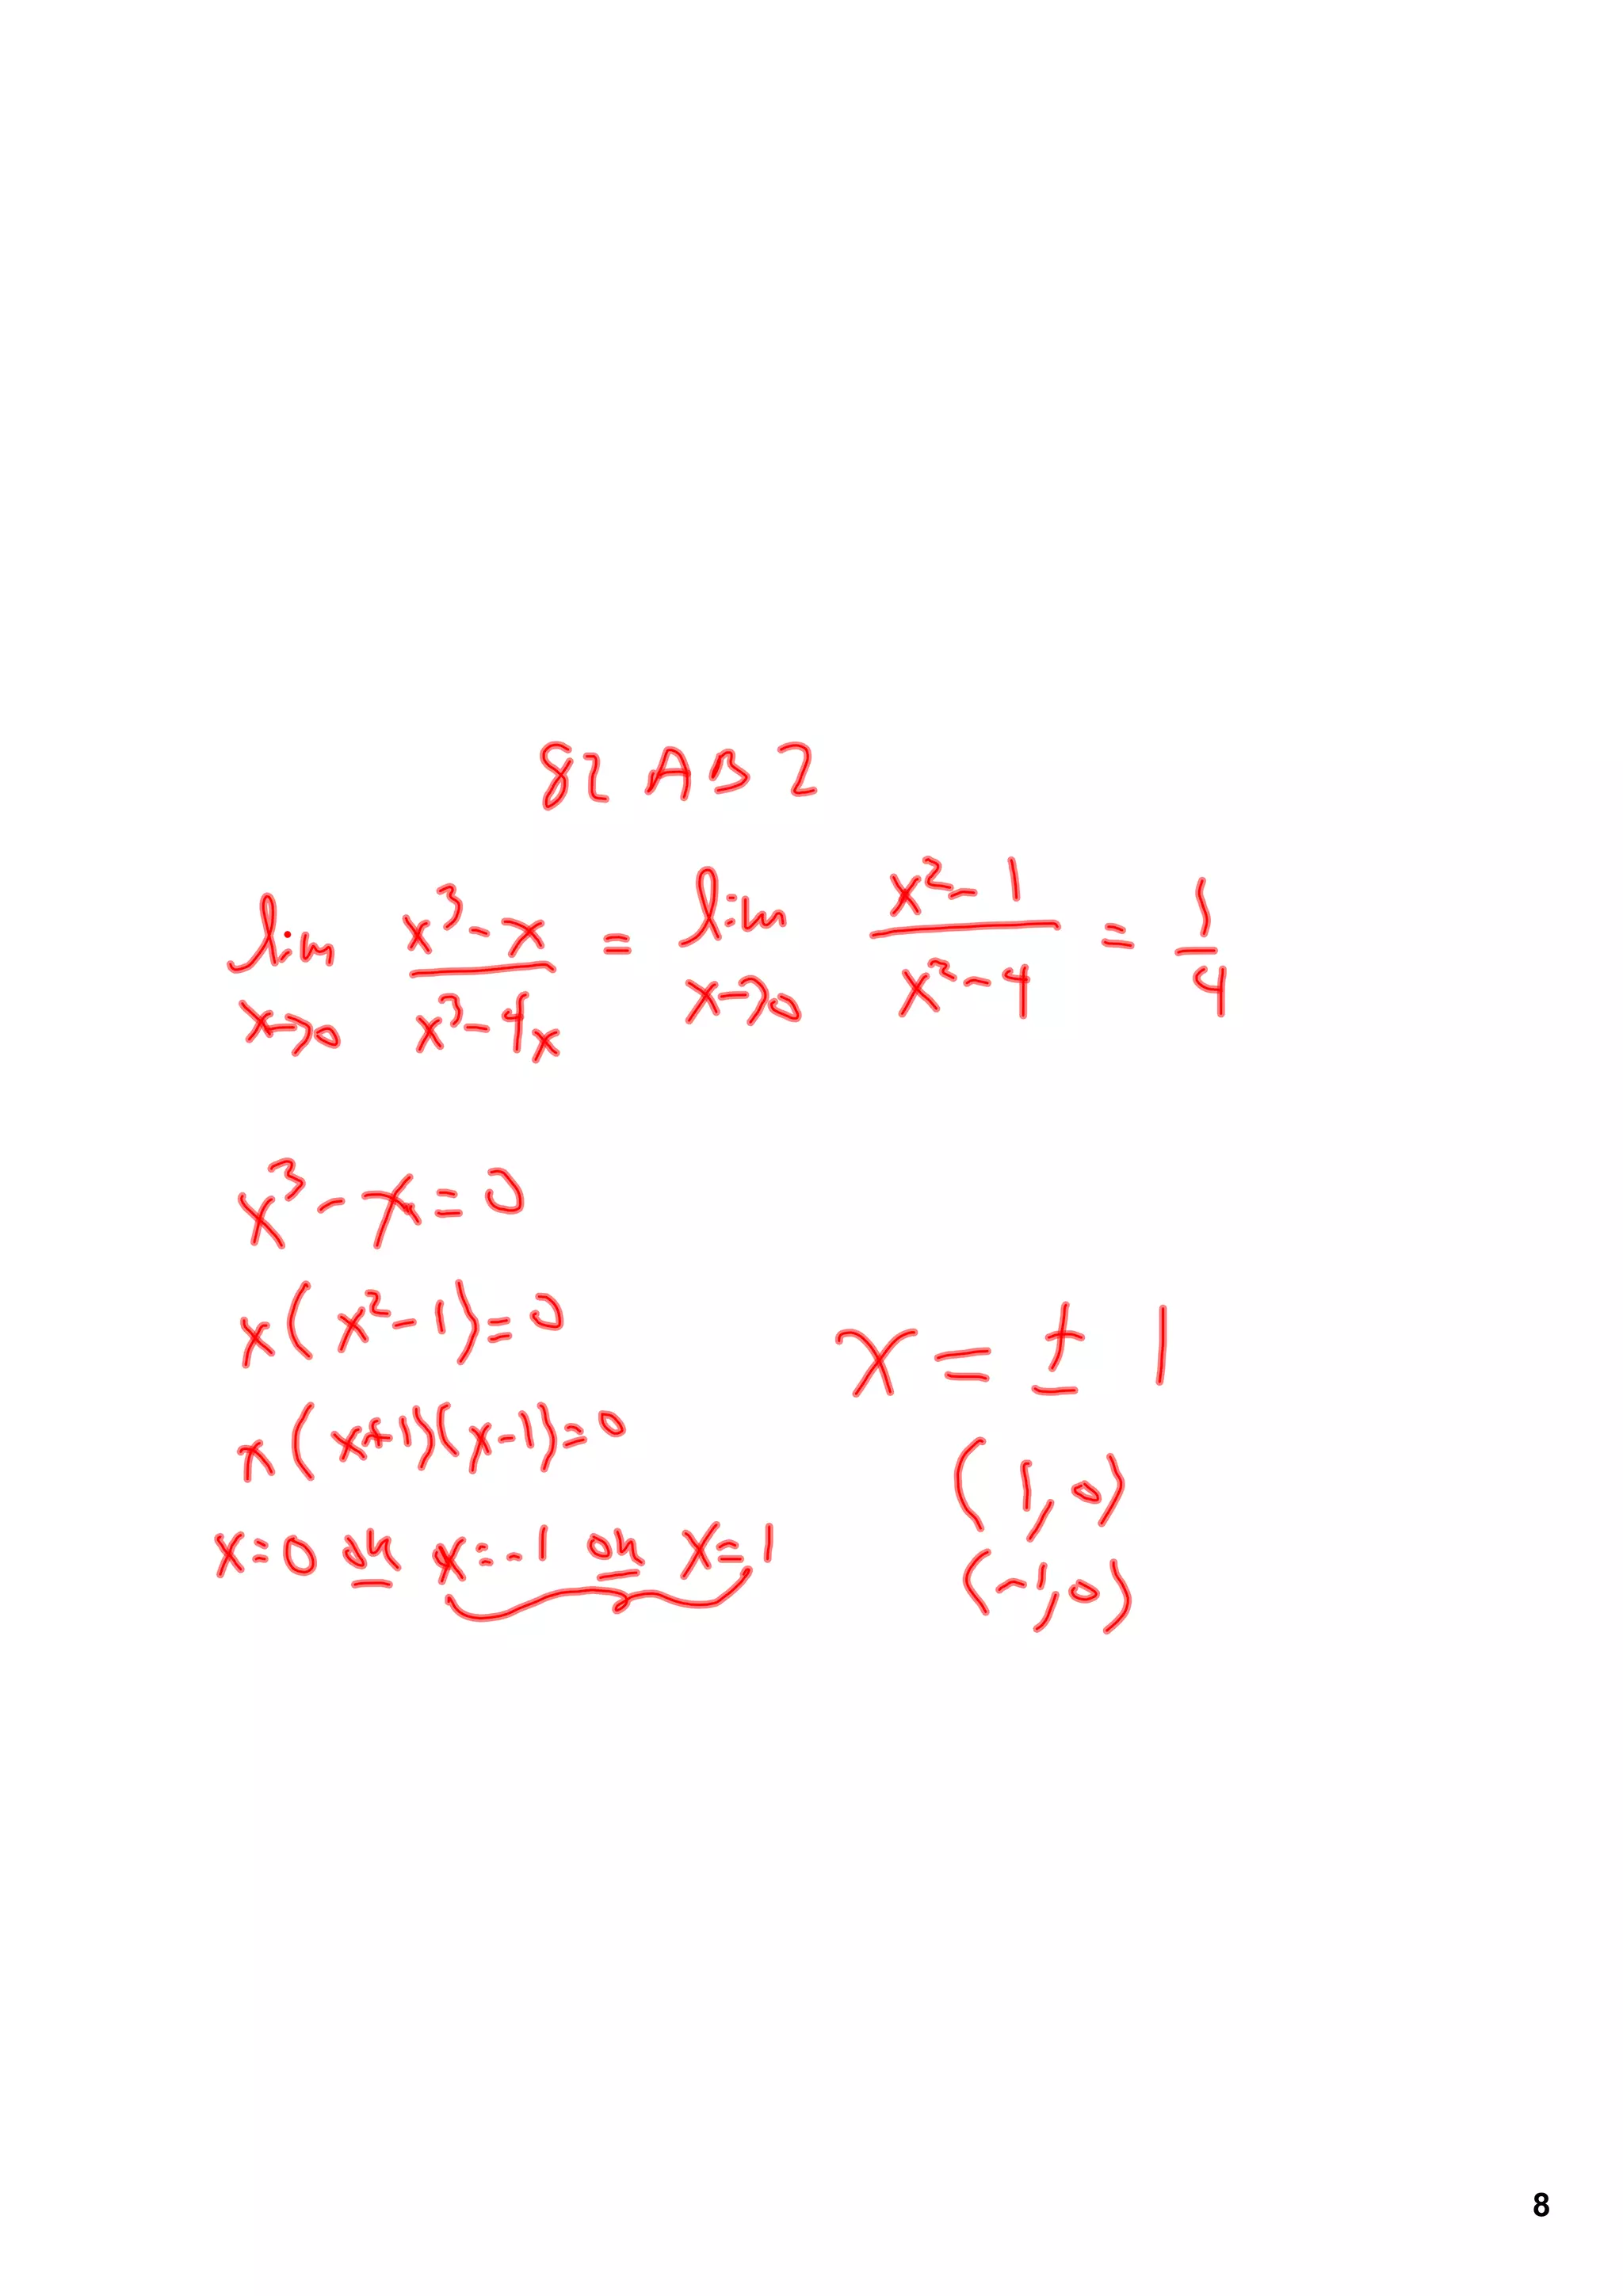 82 AB 2
lim x→0 (x³ - x)/(x³ - 4x) = lim x→0 (x² - 1)/(x² - 4) = 1/4
x³ - x = 0
x(x² - 1) = 0
x = ± 1
x(x+1)(x-1) = 0
(1, 0)
x = 0 x = -1 x = 1
(-1, 0)
8